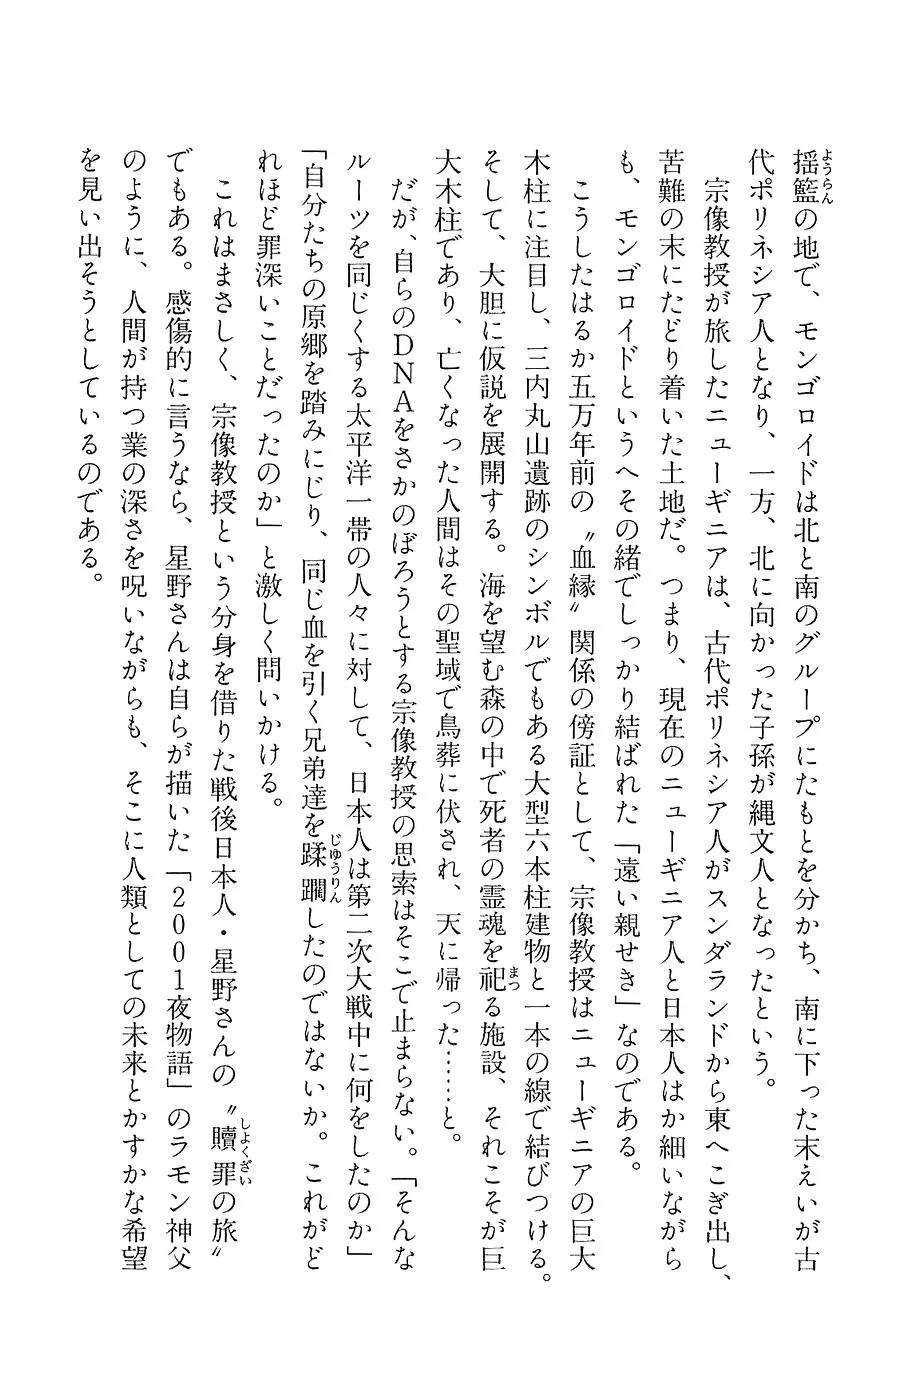 揺籃の地で、モンゴロイドは北と南のグループにたもとを分かち、南に下った末えいが古
代ポリネシア人となり、一方、北に向かった子孫が縄文人となったという。
宗像教授が旅したニューギニアは、古代ポリネシア人がスンダランドから東へこぎ出し、
苦難の末にたどり着いた土地だ。つまり、現在のニューギニア人と日本人はか細いながら
も、モンゴロイドというへその緒でしっかり結ばれた「遠い親せき」なのである。
こうしたはるか五万年前の〝血縁〟関係の傍証として、宗像教授はニューギニアの巨大
木柱に注目し、三内丸山遺跡のシンボルでもある大型六本柱建物と一本の線で結びつける。
そして、大胆に仮説を展開する。海を望む森の中で死者の霊魂を祀る施設、それこそが巨
大木柱であり、亡くなった人間はその聖域で鳥葬に伏され、天に帰った……と。
だが、自らのDNAをさかのぼろうとする宗像教授の思索はそこで止まらない。「そんな
ルーツを同じくする太平洋一帯の人々に対して、日本人は第二次大戦中に何をしたのか」
「自分たちの原郷を踏みにじり、同じ血を引く兄弟達を蹂躙したのではないか。これがど
れほど罪深いことだったのか」と激しく問いかける。
これはまさしく、宗像教授という分身を借りた戦後日本人・星野さんの〝贖罪の旅〟
でもある。感傷的に言うなら、星野さんは自らが描いた「2001夜物語」のラモン神父
のように、人間が持つ業の深さを呪いながらも、そこに人類としての未来とかすかな希望
を見い出そうとしているのである。